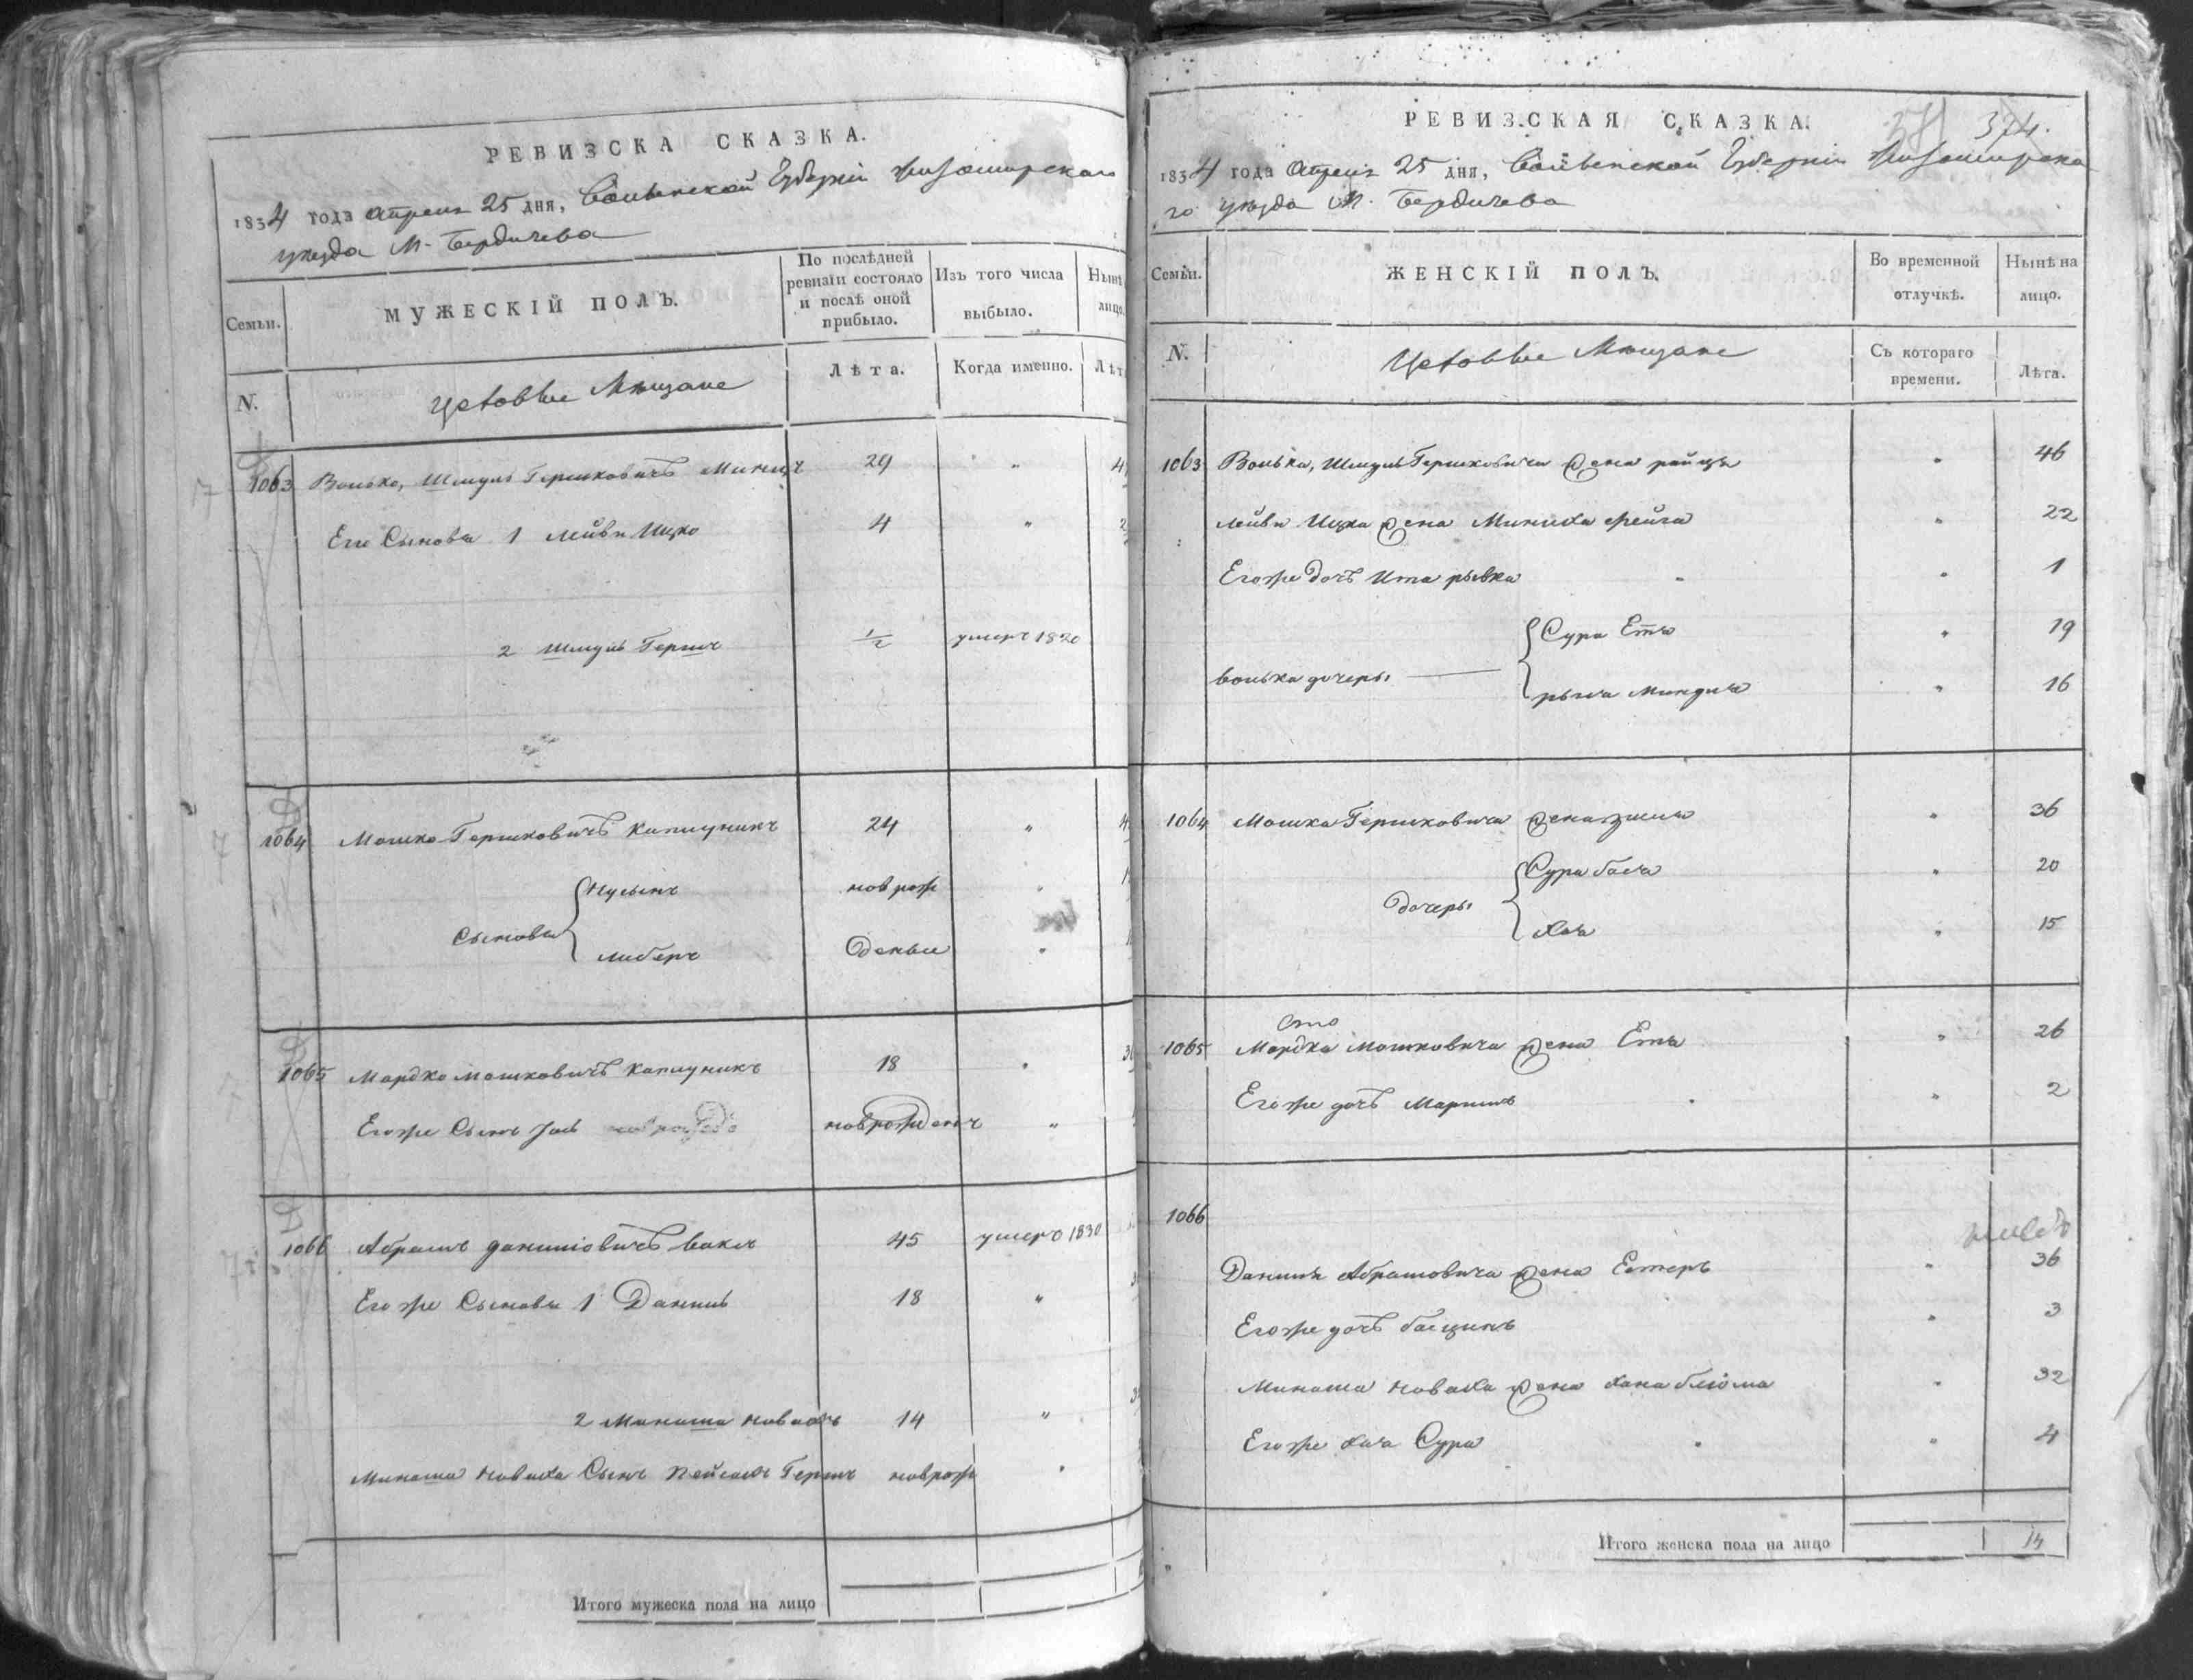 РЕВИЗСКА СКАЗКА.
1834 года Апреля 25 дня, Волынской Губерніи Житомирскаго
уезда М. Бердичева
Семьи.
МУЖЕСКІЙ ПОЛЪ.
По послѣдней ревизіи состояло и послѣ оной прибыло.
Изъ того числа выбыло.
Нынѣ
лицо.
N.
Цеховые Мещане
Лѣта.
Когда именно.
Лѣт
1063 Волько, Шмуль Гершковичъ 29 "
Его Сыновья 1 Лейви Ицко 4 "
2 Шмуль Гершъ 1/2 умеръ 1820
1064 Мошко Гершковичъ Каплуникъ 24 "
Сыновья
Нусынъ новрож "
Либеръ "
1065 Мордко Мошковичъ Каплуникъ 18 "
Егоже Сынъ новрожденъ "
1066 Абрамъ Даниловичъ 45 умеръ 1830
Его же Сыновья 1 Данииль 18 "
2 Манаша Новахъ 14 "
Манаша Новаха Сынъ Пейсахъ Гершъ новрож "
Итого мужеска пола на лицо
РЕВИЗСКАЯ СКАЗКА.
374.
1834 года Апреля 25 дня, Волынской Губерніи Житомирска
го уезда М. Бердичева
Семьи.
ЖЕНСКІЙ ПОЛЪ.
Во временной отлучкѣ.
Нынѣ на лицо.
N.
Цеховые Мещане
Съ котораго времени.
Лѣта.
1063 Волька, Шмуля Гершковича жена Райца " 46
Лейви Ицка жена Фейга " 22
Егоже дочь Ита Рывка " 1
Волька дочеры
Сура Етя " 19
Мindля " 16
1064 Мошка Гершковича жена " 36
Дочеры
Сура Бася " 20
Хая " 15
1065 Мордка Мошковича жена Етя " 26
Егоже дочь " 2
1066
Данииля Абрамовича жена Естеръ " 36
Егоже дочь " 3
Манаша Новаха жена Хана Блюма " 32
Егоже Хая Сура " 4
Итого женска пола на лицо